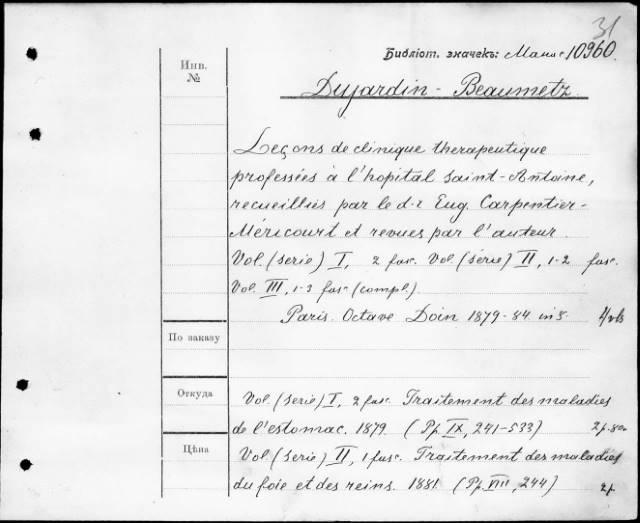 31
Библіот. значекъ: Манис 10960.
Инв.
№
Dujardin - Beaumetz.
Leçons de clinique therapeutique
professées à l'hopital Saint-Antoine,
recueillies par le d-r Eug. Carpentier-
Méricourt et revues par l'auteur.
Vol. (serie) I, 2 fasc. Vol. (série) II, 1-2 fasc.
Vol. III, 1-3 fasc (compl.)
Paris. Octave Doin 1879-84. in 8.
По заказу
Откуда
Vol. (serie) I, 2 fasc. Traitement des maladies
de l'estomac. 1879. (Pp. IX, 241-533)
Цѣна
Vol. (serie) II, 1 fasc. Traitement des maladies
du foie et des reins. 1881. (Pp. VIII, 244) 2 р.